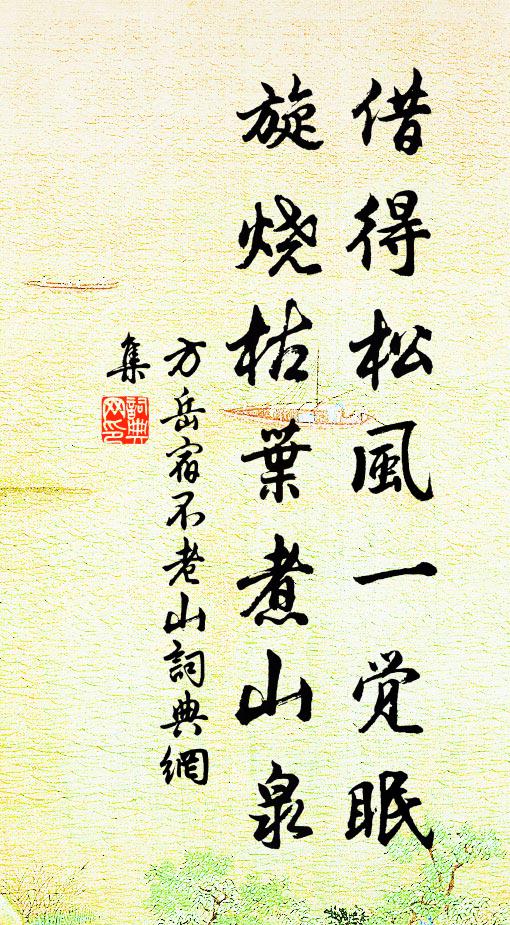 借得松風一觉眠
旋烧枯葉煮山泉
方岳宿不老山詞典網
集
詞典
网印